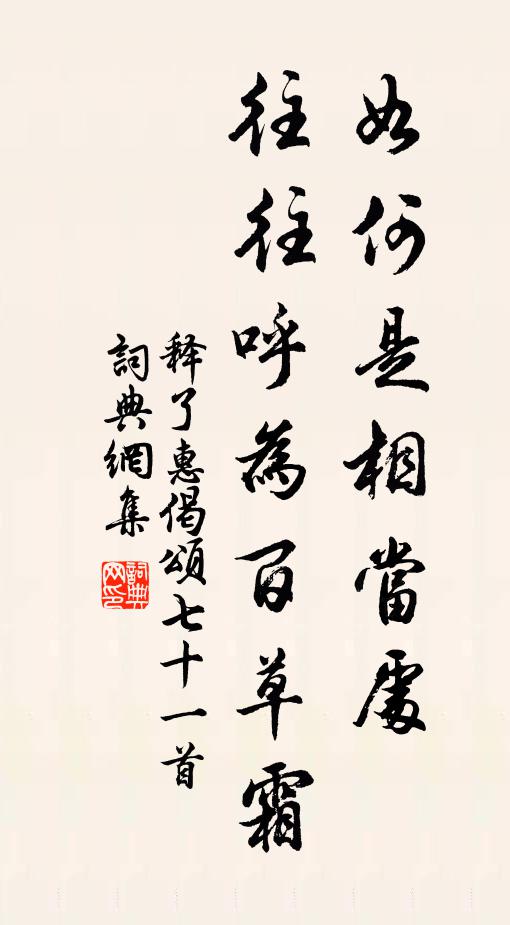 如何是相當處
往往呼為百草霜
释了惠偈頌七十一首
詞典網集
詞典网印